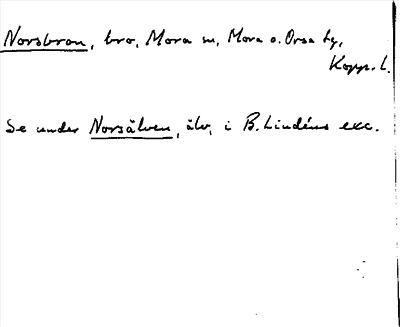 Norsbron, bro, Mora sn, Mora o. Orsa tg,
Kopp. l.
Se under Norsälven, älv, i B. Lindéns exc.